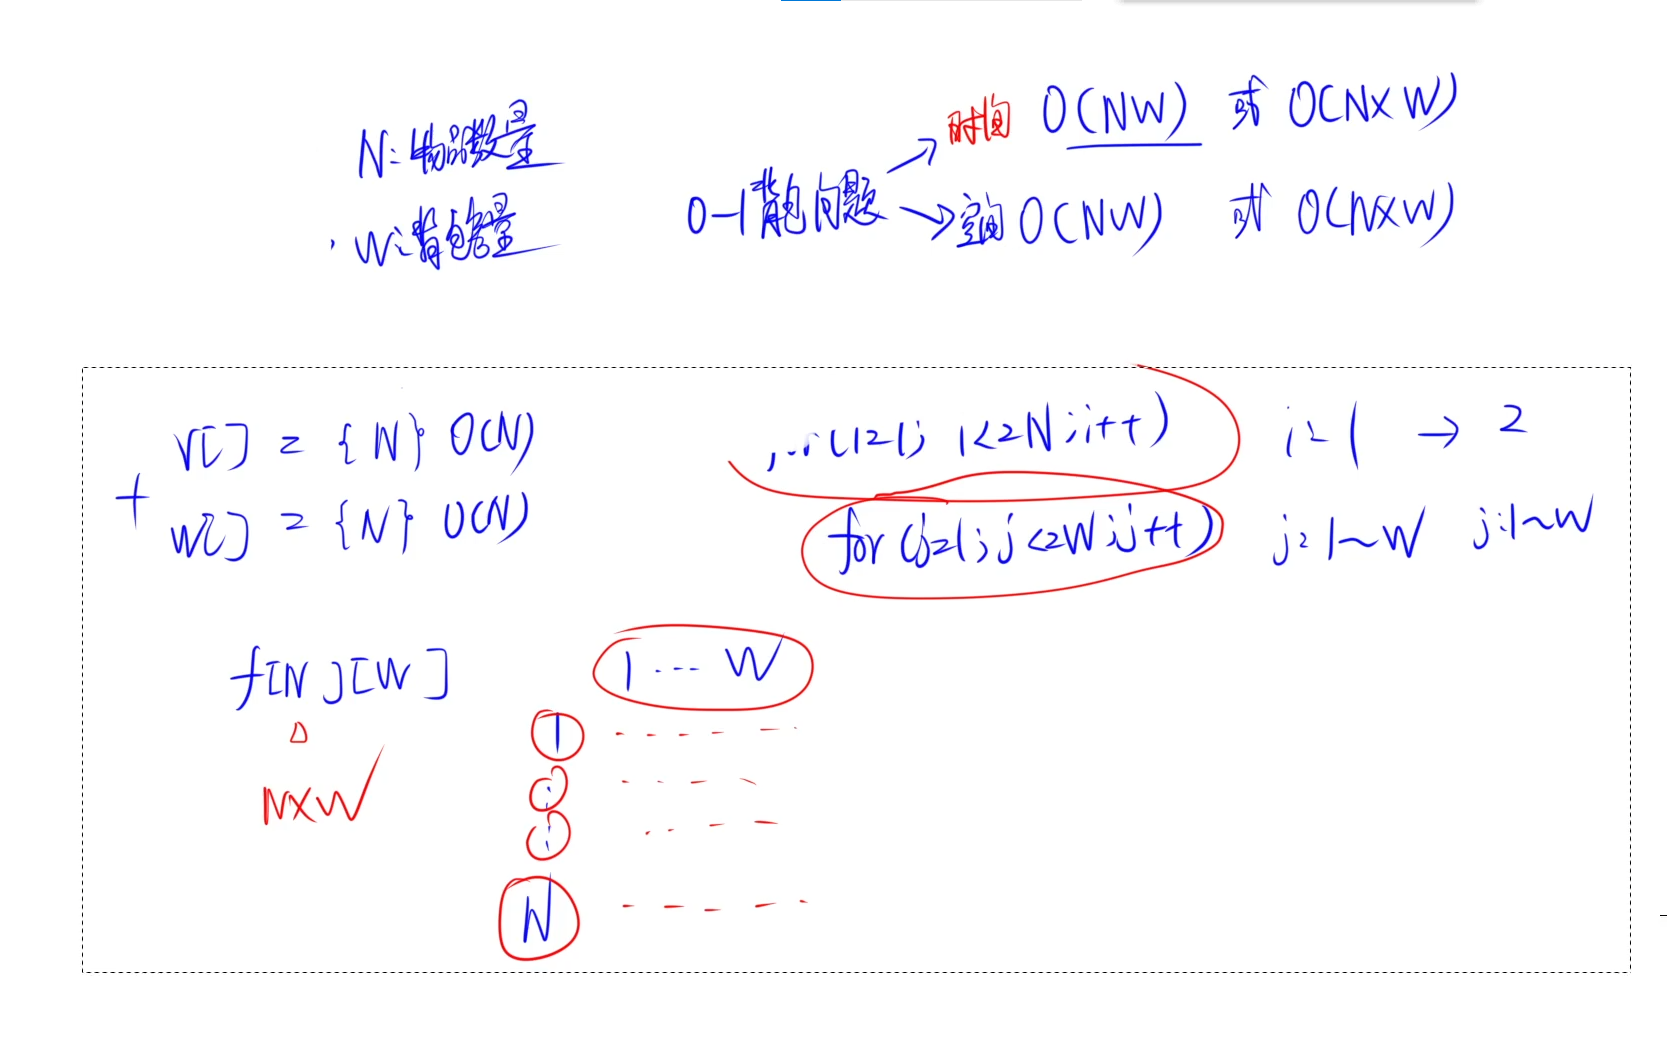 N:物品数量
W:背包容量
0-1背包问题
时间 O(NW) 或 O(N×W)
空间 O(NW) 或 O(N×W)
v[] = {N} O(N)
+
w[] = {N} O(N)
r(i=1; i<=N;i++) i=1 → 2
for(j=1;j<=W;j++) j=1~W j:1~W
f[N][W]
N×W
1 ... W
1
N